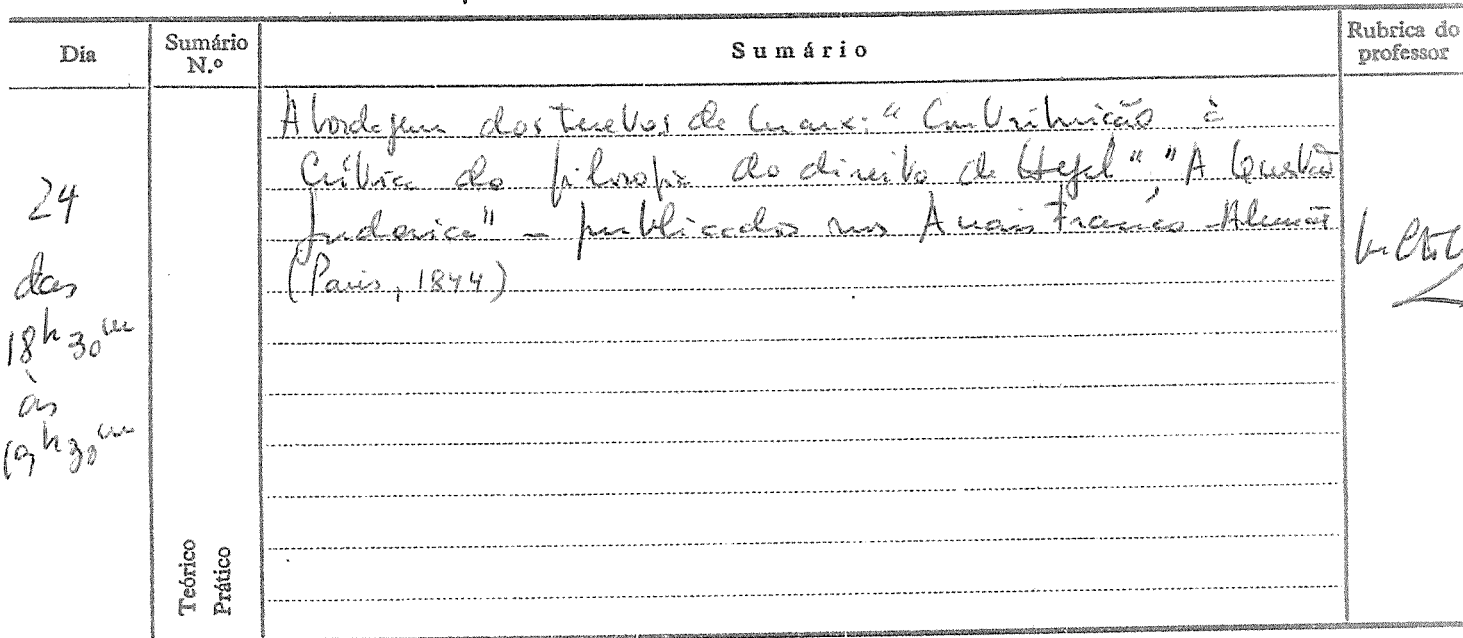 Dia
Sumário N.º
Sumário
Rubrica do professor
24
das
18h 30m
às
19h 30m
Abordagem dos textos de Marx: "Contribuição à
Crítica da filosofia do direito de Hegel", "A Questão
Judaica" – publicados nos Anais Franco-Alemães
(Paris, 1844)
Teórico
Prático